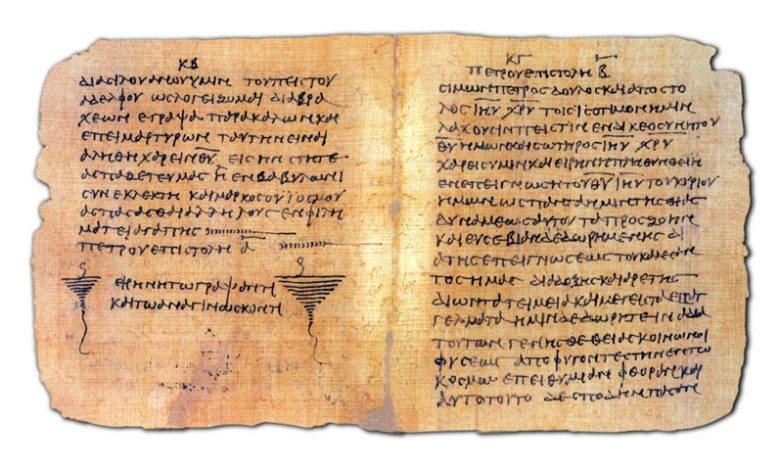 ΚΒ
ΔΙΑ ϹΙΛΟΥΑΝΟΥ ΥΜΙΝ ΤΟΥ ΠΙϹΤΟΥ
ΑΔΕΛΦΟΥ ΩϹ ΛΟΓΕΙΖΟΜΑΙ ΔΙΑ ΒΡΑ
ΧΕΩΝ ΕΓΡΑΨΑ ΠΑΡΑΚΑΛΩΝ ΚΑΙ
ΕΠΕΙΜΑΡΤΥΡΩΝ ΤΑΥΤΗΝ ΕΙΝΑΙ
ΑΛΗΘΗ ΧΑΡΕΙΝ Θ̅Υ̅ ΕΙϹ ΗΝ ϹΤΗΤΕ
ΑϹΠΑΖΕΤΕ ΥΜΑϹ Η ΕΝ ΒΑΒΥΛΩΝΙ
ϹΥΝΕΚΛΕΚΤΗ ΚΑΙ ΜΑΡΚΟϹ Ο ΥΙΟϹ ΜΟΥ
ΑϹΠΑϹΑϹΘΑΙ ΑΛΛΗΛΟΥϹ ΕΝ ΦΙΛΗ
ΜΑΤΕΙ ΑΓΑΠΗϹ
ΠΕΤΡΟΥ ΕΠΙϹΤΟΛΗ Α̅
ΕΙΡΗΝΗ ΤΩ ΓΡΑΨΑΝΤΙ
ΚΑΙ ΤΩ ΑΝΑΓΙΝΩϹΚΟΝΤΙ
ΚΓ
ΠΕΤΡΟΥ ΕΠΙϹΤΟΛΗ Β̅
ϹΙΜΩΝ ΠΕΤΡΟϹ ΔΟΥΛΟϹ ΚΑΙ ΑΠΟϹΤΟ
ΛΟϹ Ι̅Η̅Υ̅ Χ̅Ρ̅Υ̅ ΤΟΙϹ ΙϹΟΤΙΜΟΝ ΗΜΙΝ
ΛΑΧΟΥϹΙΝ ΠΙϹΤΙΝ ΕΝ ΔΙΚΕΟϹΥΝΗ ΤΟΥ
Θ̅Υ̅ ΗΜΩΝ ΚΑΙ ϹΩΤΗΡΟϹ Ι̅Η̅Υ̅ Χ̅Ρ̅Υ̅
ΧΑΡΕΙϹ ΥΜΙΝ ΚΑΙ ΕΙΡΗΝΗ ΠΛΗΘΥΝΘΕΙΗ
ΕΝ ΕΠΕΙΓΝΩϹΗ ΤΟΥ Θ̅Υ̅ Ι̅Η̅Υ̅ ΤΟΥ ΚΥΡΙΟΥ
ΗΜΩΝ ΩϹ ΠΑΝΤΑ ΗΜΙΝ ΤΗϹ ΘΙΑϹ
ΔΥΝΑΜΕΩϹ ΑΥΤΟΥ ΤΑ ΠΡΟϹ ΖΩΗΝ
ΚΑΙ ΕΥϹΕΒΙΑΝ ΔΕΔΩΡΗΜΕΝΗϹ ΔΙ
Α ΤΗϹ ΕΠΕΙΓΝΩϹΕΩϹ ΤΟΥ ΚΑΛΕϹΑΝ
ΤΟϹ ΗΜΑϹ ΔΙΑ ΔΟΞΗϹ ΚΑΙ ΑΡΕΤΗϹ
ΔΙ ΩΝ ΤΑ ΤΕΙΜΕΙΑ ΚΑΙ ΜΕΓΙϹΤΑ ΕΠΑΓ
ΓΕΛΜΑΤΑ ΗΜΙΝ ΔΕΔΩΡΗΤΕ ΙΝΑ ΔΙΑ
ΤΟΥΤΩΝ ΓΕΝΗϹΘΕ ΘΕΙΑϹ ΚΟΙΝΩΝΟΙ
ΦΥϹΕΩϹ ΑΠΟΦΥΓΟΝΤΕϹ ΤΗΝ ΕΝ ΤΩ
ΚΟϹΜΩ ΕΠΕΙΘΥΜΙΑΝ ΦΘΟΡΑϹ ΚΑΙ
ΑΥΤΟ ΤΟΥΤΟ ΔΕ ϹΠΟΥΔΗΝ ΠΑϹΑΝ